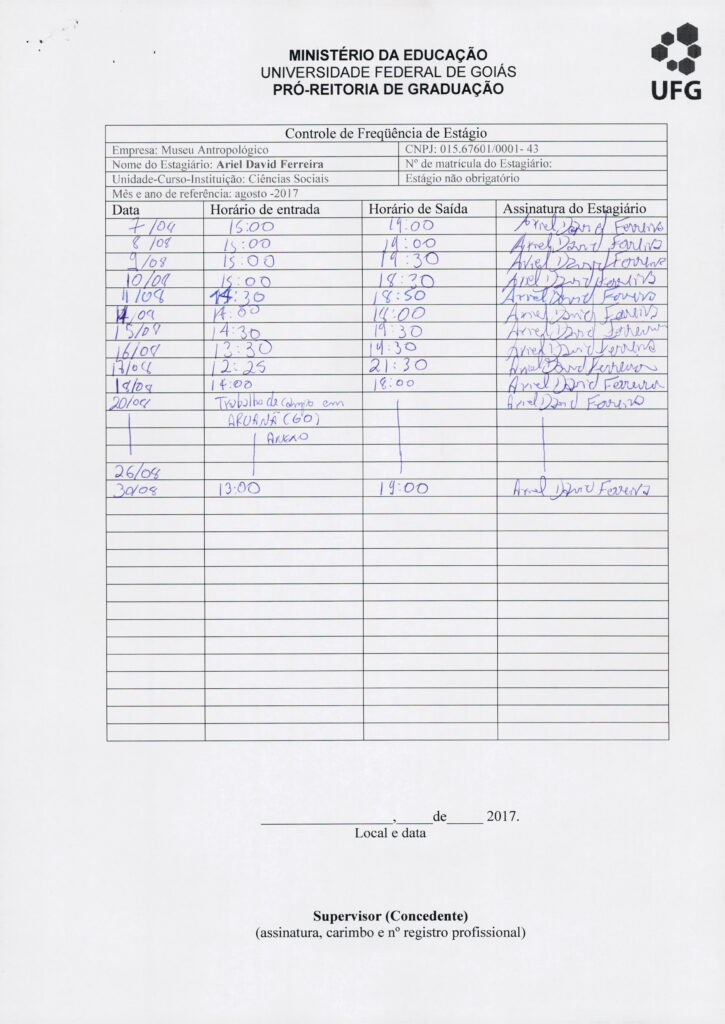 MINISTÉRIO DA EDUCAÇÃO
UNIVERSIDADE FEDERAL DE GOIÁS
PRÓ-REITORIA DE GRADUAÇÃO
UFG
Controle de Freqüência de Estágio
Empresa: Museu Antropológico CNPJ: 015.67601/0001- 43
Nome do Estagiário: Ariel David Ferreira Nº de matrícula do Estagiário:
Unidade-Curso-Instituição: Ciências Sociais Estágio não obrigatório
Mês e ano de referência: agosto -2017
Data Horário de entrada Horário de Saída Assinatura do Estagiário
7/08 15:00 19:00 Ariel David Ferreira
8/08 15:00 19:00 Ariel David Ferreira
9/08 15:00 19:30 Ariel David Ferreira
10/08 15:00 18:30 Ariel David Ferreira
11/08 14:30 18:50 Ariel David Ferreira
14/08 14:00 18:00 Ariel David Ferreira
15/08 14:30 19:30 Ariel David Ferreira
16/08 13:30 19:30 Ariel David Ferreira
17/08 12:25 21:30 Ariel David Ferreira
18/08 14:00 18:00 Ariel David Ferreira
20/08 Trabalho de campo em Ariel David Ferreira
ARUANÃ (GO)
ANEXO
26/08
30/08 13:00 19:00 Ariel David Ferreira
____________________,_____de_____ 2017.
Local e data
Supervisor (Concedente)
(assinatura, carimbo e nº registro profissional)